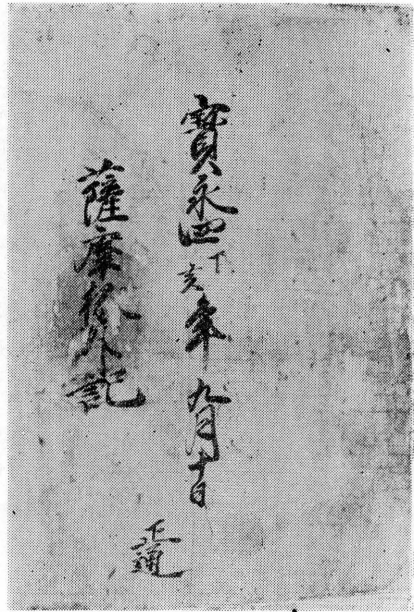 寶永四丁亥年九月十日
薩摩掾外記
正通